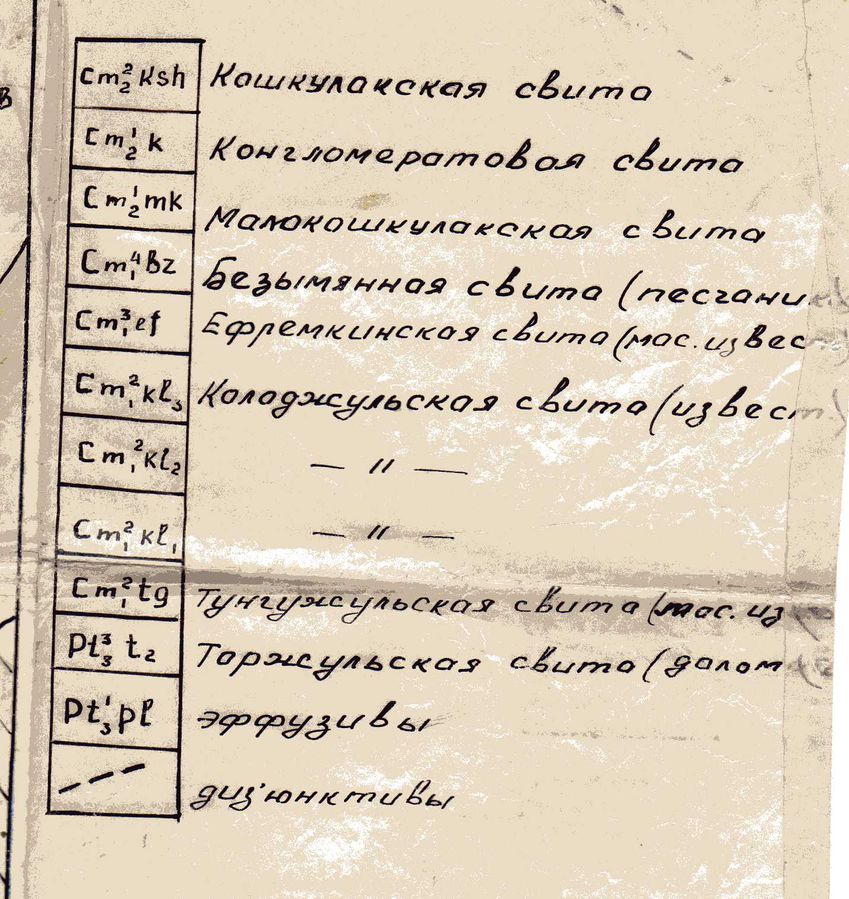 Cm₂²Ksh Кошкулакская свита
Cm₂¹k Конгломератовая свита
Cm₂¹mk Малокошкулакская свита
Cm₁⁴Bz Безымянная свита (песчани
Cm₁³ef Ефремкинская свита (мас. извес
Cm₁²kl₃ Колоджульская свита (извест.
Cm₁²kl₂ — 〃 —
Cm₁²kl₁ — 〃 —
Cm₁²tg Тунгужульская свита (мас. из
Pt₃³t₂ Торжульская свита (долом
Pt₃¹pl эффузивы
дизъюнктивы
В